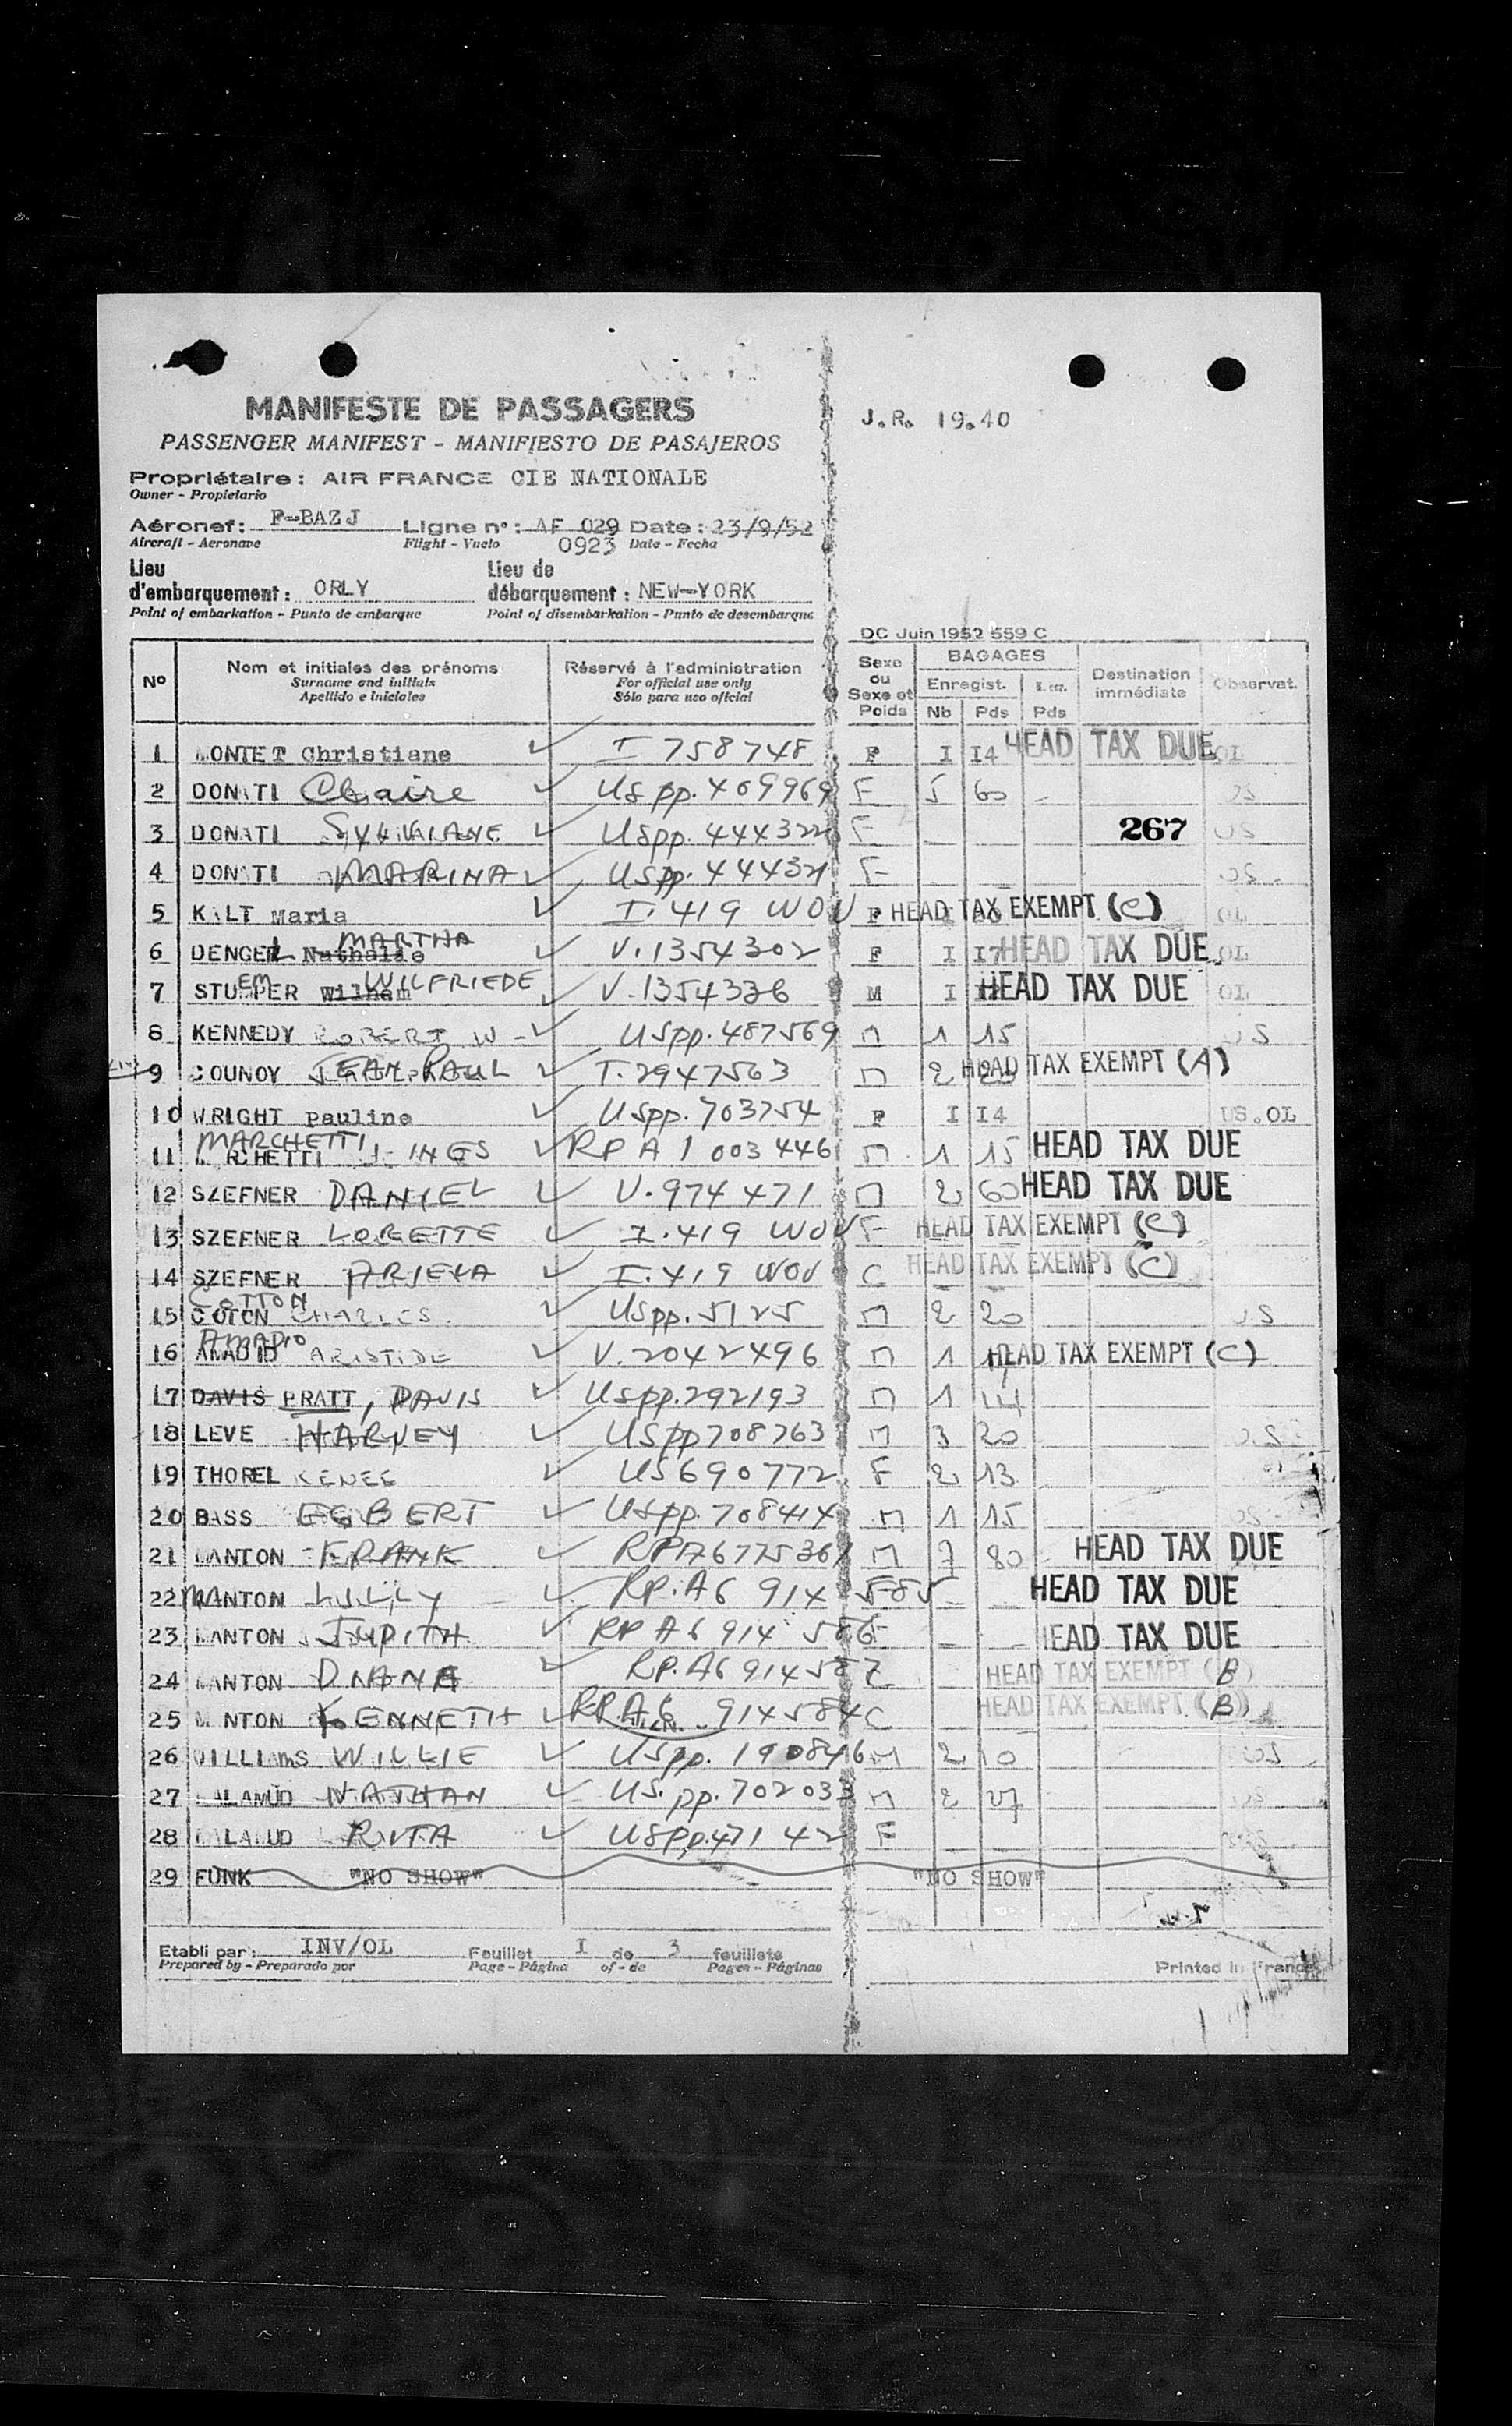 MANIFESTE DE PASSAGERS
PASSENGER MANIFEST - MANIFIESTO DE PASAJEROS
J.R. 19.40
Propriétaire : AIR FRANCE CIE NATIONALE
Owner - Propietario
Aéronef : F-BAZJ Ligne n° : AF 029 Date : 23/9/52
Aircraft - Aeronave Flight - Vuelo 0923 Date - Fecha
Lieu d'embarquement : ORLY Lieu de débarquement : NEW-YORK
Point of embarkation - Punto de embarque Point of disembarkation - Punto de desembarque
DC Juin 1952 559 C
N° Nom et initiales des prénoms Réservé à l'administration Sexe ou Sexe et Poids BAGAGES Destination immédiate Observat.
Surname and initials For official use only Enregist.
Apellido e iniciales Sólo para uso oficial Nb Pds Pds
1 MONTET Christiane I 758748 F I I4 HEAD TAX DUE OL
2 DONATI Claire US pp. 409969 F 5 60 US
3 DONATI SYLVIANE USpp. 444322 F 267 US
4 DONATI MARINA USpp. 444321 F US
5 KALT Maria I. 419 WOV F HEAD TAX EXEMPT (C) OL
6 DENGEL Nathalie MARTHA V. 1354302 F I I7 HEAD TAX DUE OL
7 STUMPER EM WILFRIEDE V. 1354336 M I HEAD TAX DUE OL
8 KENNEDY ROBERT W - USpp. 487569 M 1 15 US
9 COUNOY JEAN PAUL T. 2947563 M 2 HEAD TAX EXEMPT (A)
10 WRIGHT Pauline USpp. 703754 F I I4 US.OL
11 MARCHETTI RP A 1 003446 M 1 15 HEAD TAX DUE
12 SZEFNER DANIEL V. 974471 M 2 60 HEAD TAX DUE
13 SZEFNER LORETTE I. 419 WOV F HEAD TAX EXEMPT (C)
14 SZEFNER ARIELA I. 419 WOV C HEAD TAX EXEMPT (C)
15 COTON COTTON CHARLES USpp. 5125 M 2 20 US
16 AMADIO ARISTIDE V. 2042496 M 1 HEAD TAX EXEMPT (C)
17 DAVIS PRATT, DAVIS USpp. 292193 M 1 14
18 LEVE HARVEY USpp 708763 M 3 20 US
19 THOREL RENEE US 690772 F 2 13
20 BASS EGBERT USpp. 708414 M 1 15 US
21 MANTON FRANK RPA6775361 M 7 80 HEAD TAX DUE
22 MANTON LILLY RP. A6 914 585 HEAD TAX DUE
23 MANTON JUDITH RP A6 914 586 HEAD TAX DUE
24 MANTON DIANA RP. A6 914587 HEAD TAX EXEMPT (B)
25 MANTON KENNETH RP. A6 914584 C HEAD TAX EXEMPT (B)
26 WILLIAMS WILLIE USpp. 190846 M 2 10
27 MALAMUD NATHAN US. pp. 702033 M 2 27 US
28 MALAMUD RITA USpp. 47142 F
29 FUNK "NO SHOW" "NO SHOW"
Etabli par : INV/OL Feuillet I de 3 feuillets
Prepared by - Preparado por Page - Página of - de Pages - Páginas
Printed in France